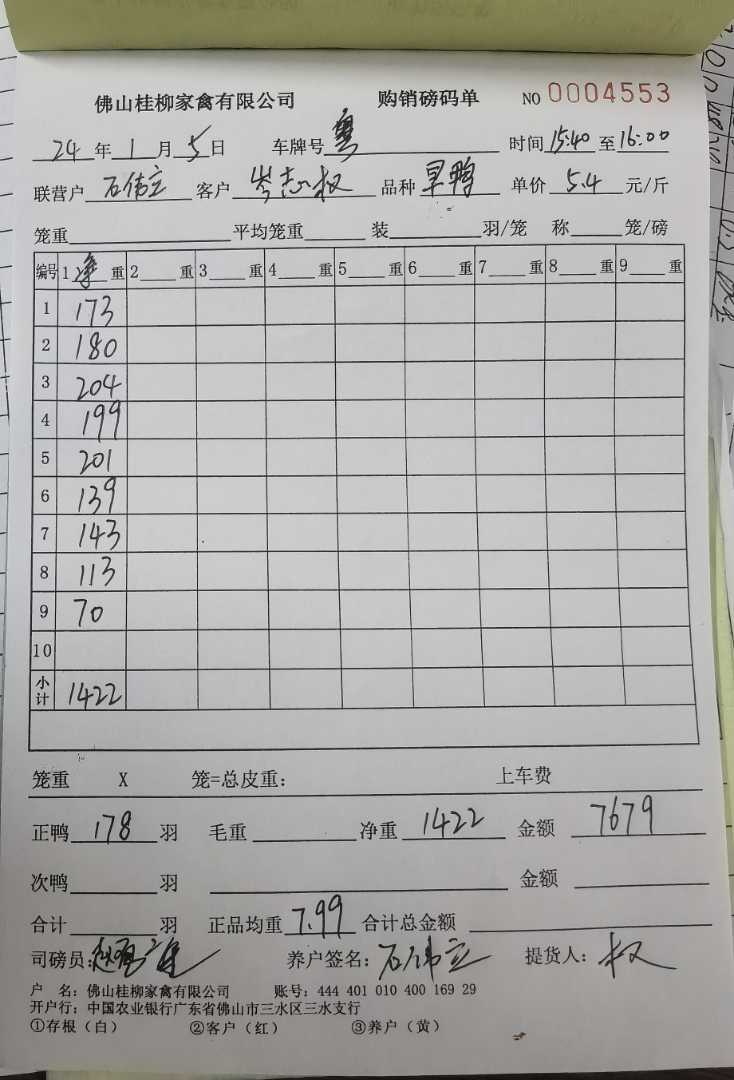 佛山桂柳家禽有限公司 购销磅码单 NO 0004553
24 年 1 月 5 日 车牌号 粤 时间 15:40 至 16:00
联营户 石伟立 客户 岑志权 品种 旱鸭 单价 5.4 元/斤
笼重 平均笼重 装 羽/笼 称 笼/磅
编号 1 净 重 2 重 3 重 4 重 5 重 6 重 7 重 8 重 9 重
1 173
2 180
3 204
4 199
5 201
6 139
7 143
8 113
9 70
10
小计 1422
笼重 X 笼=总皮重： 上车费
正鸭 178 羽 毛重 净重 1422 金额 7679
次鸭 羽 金额
合计 羽 正品均重 7.99 合计总金额
司磅员： 养户签名：石伟立 提货人：权
户 名：佛山桂柳家禽有限公司 账号：444 401 010 400 169 29
开户行：中国农业银行广东省佛山市三水区三水支行
①存根（白） ②客户（红） ③养户（黄）